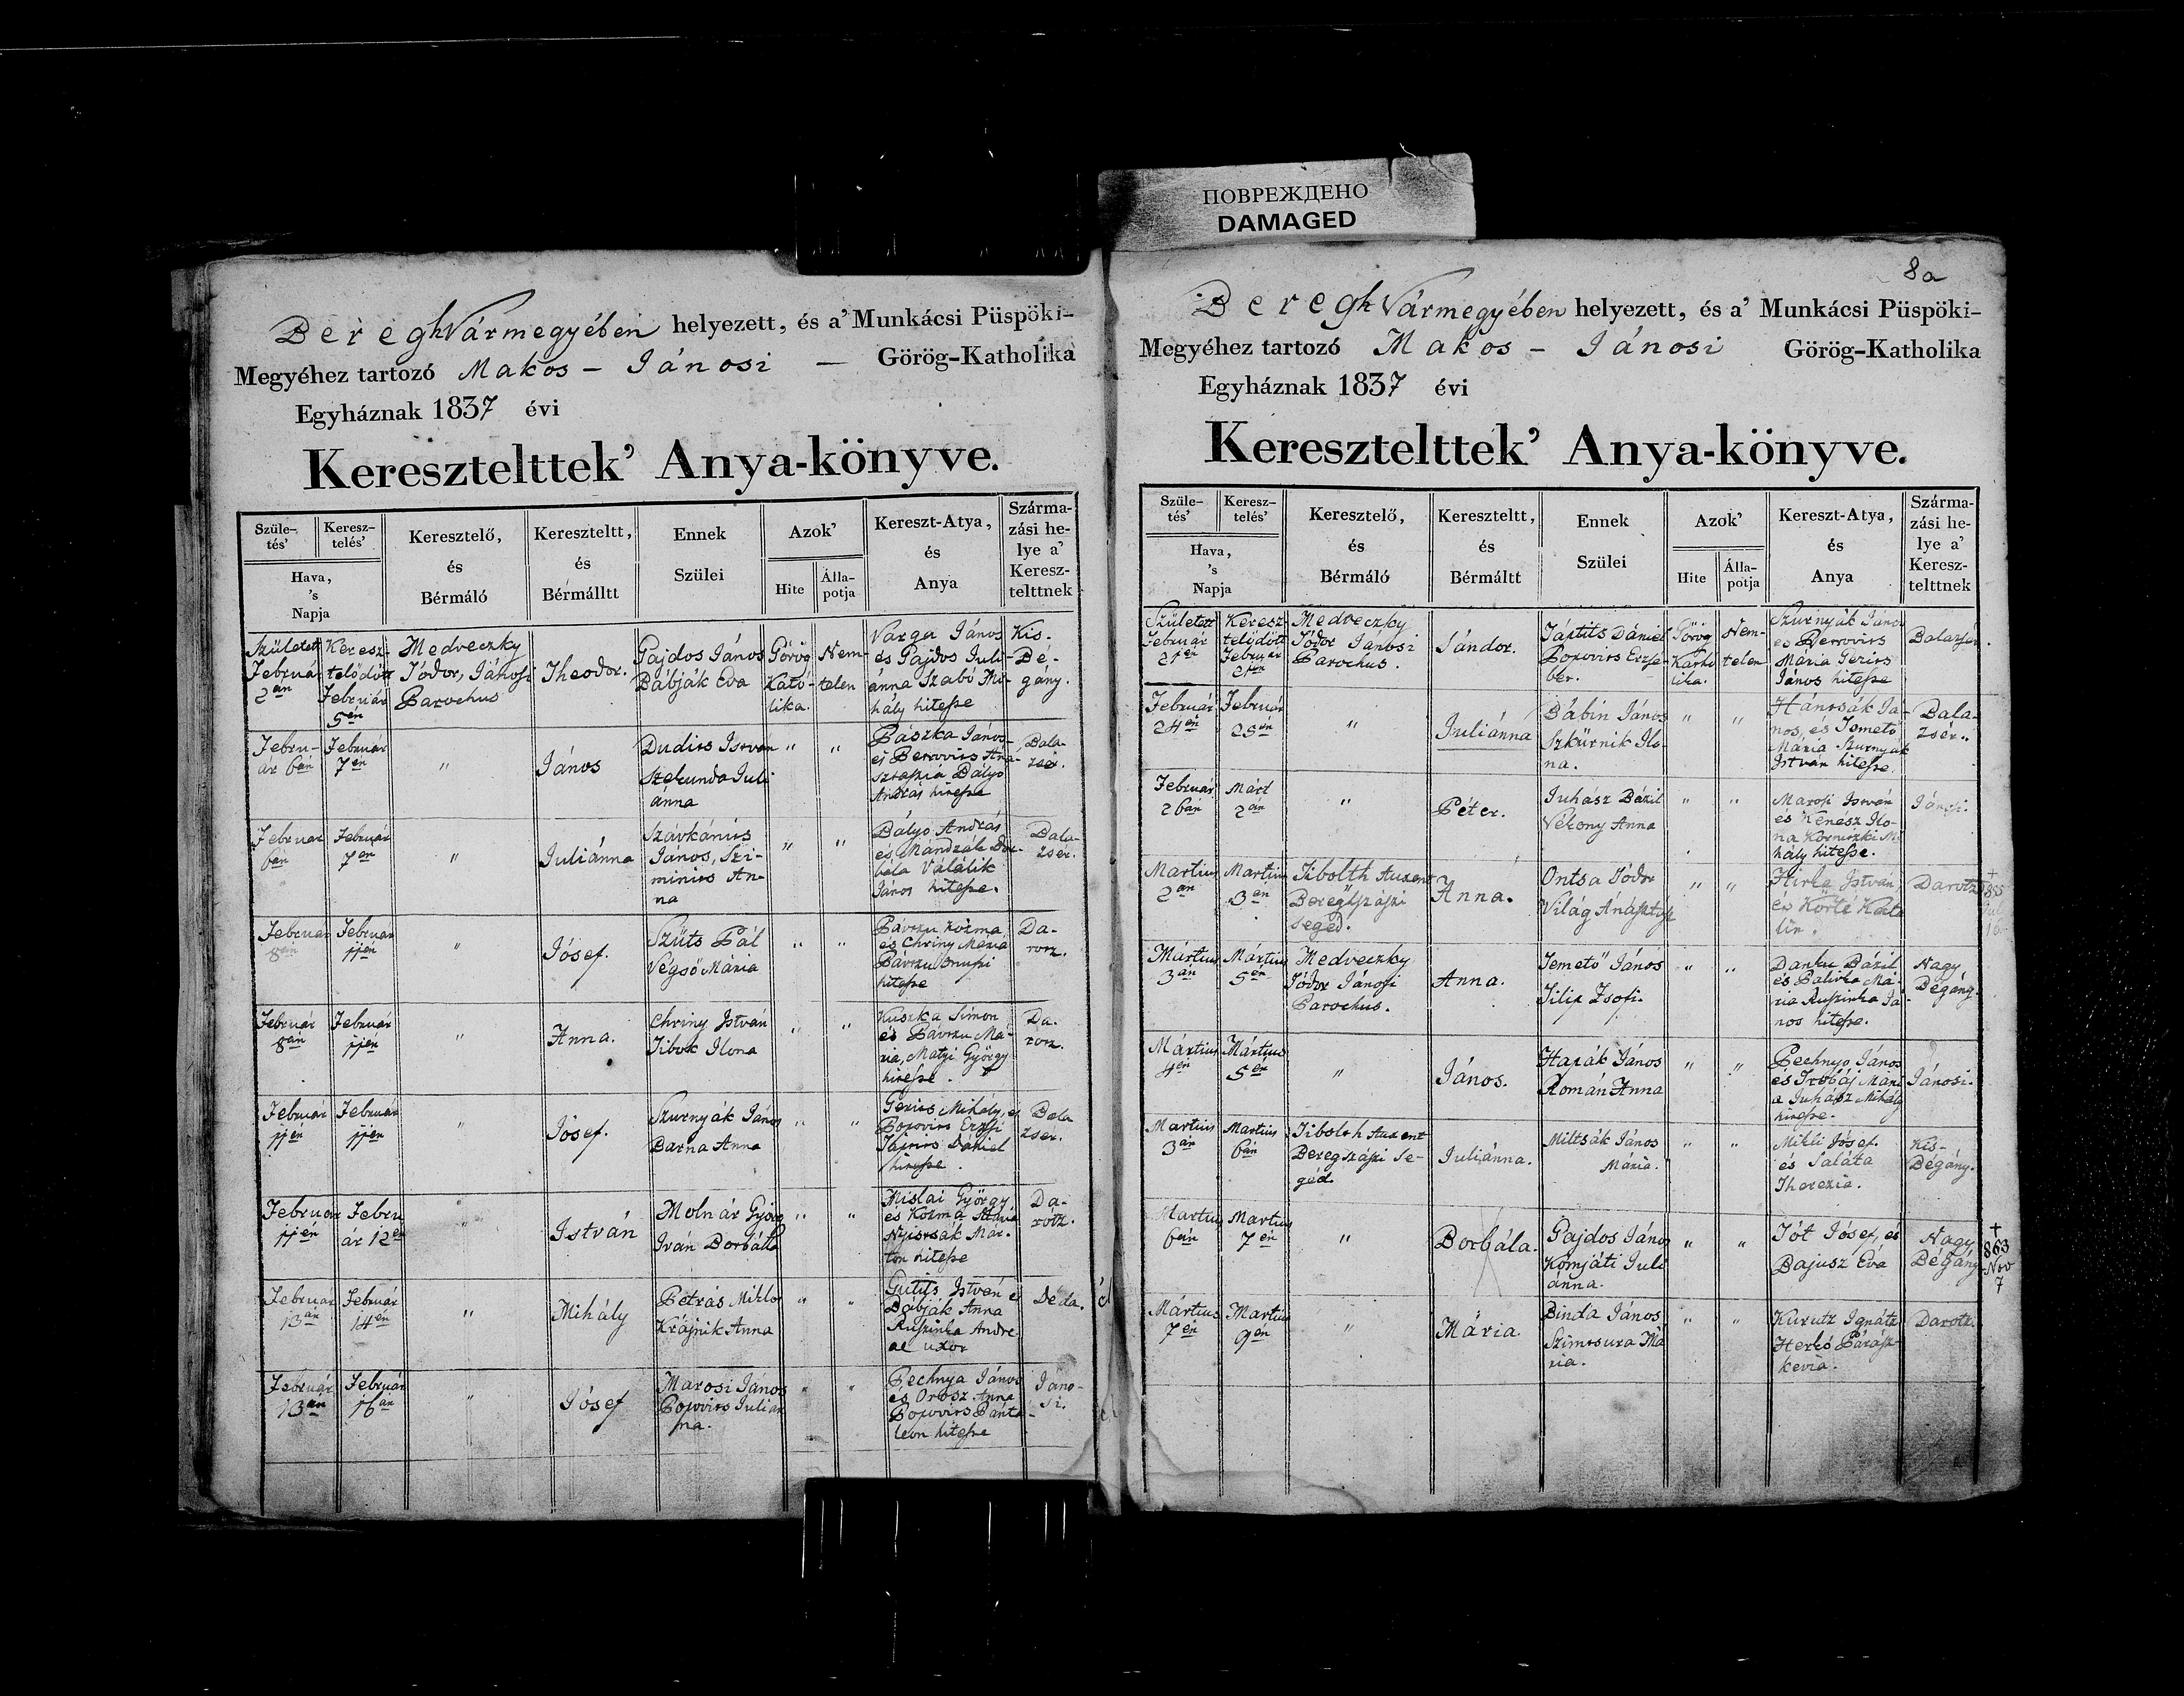 ПОВРЕЖДЕНО
DAMAGED
Beregh Vármegyében helyezett, és a' Munkácsi Püspöki-
Megyéhez tartozó Makos - Jánosi — Görög-Katholika
Egyháznak 1837 évi
Keresztelttek' Anya-könyve.
Szüle-tés' Keresz-telés' Keresztelő, Kereszteltt, Ennek Azok' Kereszt-Atya, Szárma-
zási he-
lye a'
Keresz-
telttnek
Hava, 's Napja
és Bérmáló
és Bérmálltt
Szülei
Hite Álla-potja
és Anya
Született Februá 2án
Keresz-telődött Február 5én
Medveczky
Tódor, Jánosi
Parochus
Theodor.
Gajdos János
Bábják Éva
Görög Kató-lika.
Nem-telen
Varga János
és Gajdos Juli-
ánna Szabó Mi-
hály hitesse
Kis-Bé-gány.
Febru-ár 6án
Február 7én
"
János
Dudits István
Szekunda Juli
ánna
" "
Pászka János
András hitesse
Bala-zsér.
Február 6án
Február 7én
"
Juliánna
János, Szi-
minits An-
na
" "
Bályo András
és Mandzák Bor-
bála Valálik
János hitesse.
Bala-zsér.
Február 8án
Február 11én
"
Jósef.
Szüts Pál
Végső Mária
" "
és Chriny Mária
hitesse
Da-rotz.
Február 8án
Február 11én
"
Anna.
Chriny István
Tibok Ilona
" "
Kuszka Simon
ria, Matyi György
hitesse.
Da-rotz.
Február 11én
Február 11én
"
Jósef.
Szurnyák János
Barna Anna
" "
Gerits Mihály, és
Popovits Erzsi
Dániel
hitesse.
Bala zsér.
Február 11én
Febru ár 12én
"
István
Molnár György
Iván Borbála
" "
Mislai György
és Kozma Mária
ton hitesse
Da-rotz.
Február 13án
Február 14én
"
Mihály
Petrás Miklo
Krájnik Anna
" "
Bábják Anna
Ruszinka Andre
ae uxor
Déda.
Február 13án
Február 16án
"
Jósef
Marosi János
Popovits Julián
na.
" "
Pechnya János
és Orosz Anna
Popovits Pánta-
leon hitesse
Jáno-si.
8a
Beregh Vármegyében helyezett, és a' Munkácsi Püspöki-
Megyéhez tartozó Makos - Jánosi Görög-Katholika
Egyháznak 1837 évi
Keresztelttek' Anya-könyve.
Szüle-tés' Keresz-telés' Keresztelő, Kereszteltt, Ennek Azok' Kereszt-Atya, Szárma-
zási he-
lye a'
Keresz-
telttnek
Hava, 's Napja
és Bérmáló
és Bérmáltt
Szülei
Hite Álla-potja
és Anya
Született Február 21én
Keresz telődött Február 21én
Medveczky
Tódor Jánosi
Parochus.
Sándor.
Popovits Erzsé-
bet.
Görög Katho lika.
Nem-telen
Szurnyák János
Mária Gerits
János hitesse
Balazsér.
Február 24én
Február 25én
"
Juliánna
Bábin János
Szkürnik Ilo-
na.
" "
Hántsák Já-
nos, és Temető
Mária Szurnyák
István hitesse.
Bala-zsér.
Február 26án
Márt 2án
"
Péter.
Juhász Bázil
Vékony Anna
" "
Marosi István
és Kenész Ilo-
na
hály hitesse.
Jánosi.
Martius 2án
Martius 3án
Tibolth Auxent
Beregszászi
segéd.
Anna.
Ontsa Tódor
Világ
" "
Hirka István,
és Körté Kata
lin.
Darotz
Mártius 3án
Mártius 5én
Medveczky
Tódor Jánosi
Parochus.
Anna.
Temető János
Filip Zsofi.
" "
Danku Bázil
és Palinka Má-
ria Ruszinka Já-
nos hitesse.
Nagy Bégány.
Mártius 4én
Mártius 5én
"
János.
Hapák János
Román Anna
" "
Pechnyo János
a Juhász Mihály
hitesse.
Jánosi.
Martius 3án
Martius 6án
Tibolth Auxent
Beregszászi Se-
géd.
Juliánna.
Miltsák János
Mária.
" "
Mikli Jósef.
és Saláta
Therezia.
Kis-Bégány.
Martius 6án
Martius 7én
"
Borbála.
Gajdos János
Komjáti Juli
ánna.
" "
Tót Jósef, és
Bajusz Éva
Nagy Bégány
+
863
Nov
7
Mártius 7én
Martius 9én
"
Mária.
Binda János
Szimtsura Má
ria.
" "
Kurutz Ignátz
Herkó Párász-
kevia.
Darotz.